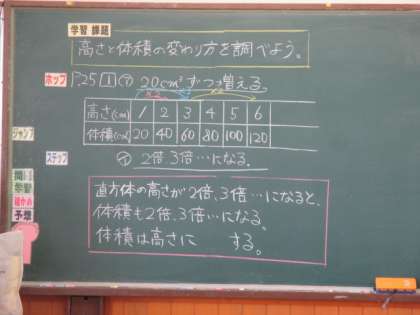 学習 課題
高さと体積の変わり方を調べよう。
ホップ P.25 1 ㋐ 20cm³ずつ増える。
高さ(cm) 1 2 3 4 5 6
ジャンプ 体積(cm³) 20 40 60 80 100 120
ステップ ㋑ 2倍 3倍…になる。
直方体の高さが2倍、3倍…になると、
体積も2倍、3倍…になる。
体積は高さに する。
学習
確かめ
予想